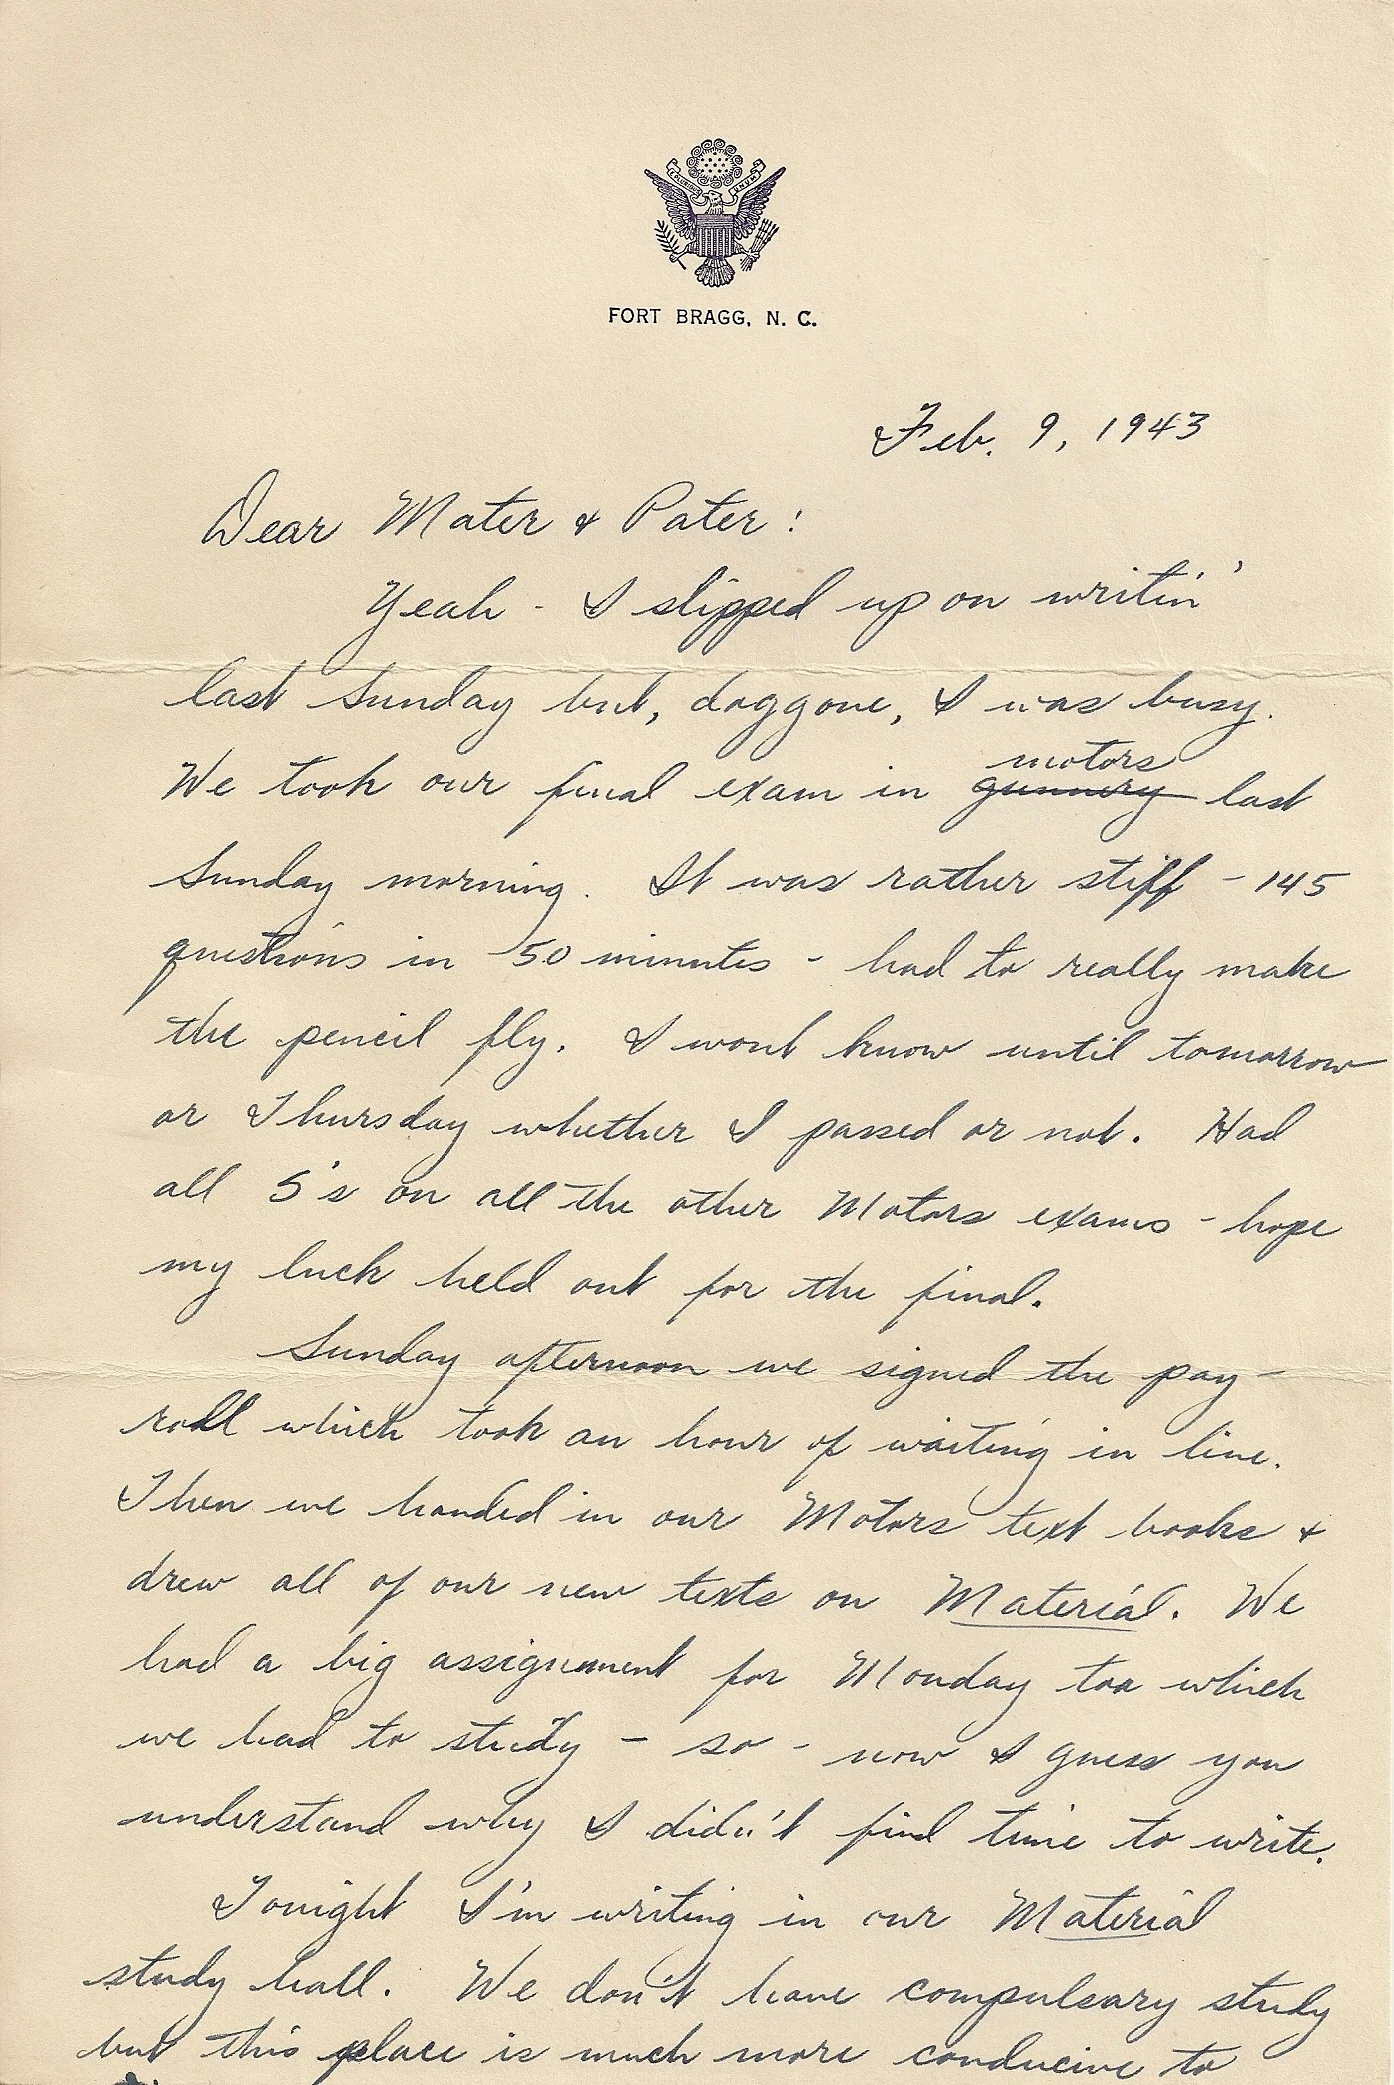 E PLURIBUS UNUM
FORT BRAGG, N. C.
Feb. 9, 1943
Dear Mater & Pater:
Yeah - I slipped up on writin'
last Sunday but, doggone, I was busy.
motors
We took our final exam in gunnery last
Sunday morning. It was rather stiff - 145
questions in 50 minutes - had to really make
the pencil fly. I wont know until tomorrow
or Thursday whether I passed or not. Had
all S's on all the other Motors exams - hope
my luck held out for the final.
Sunday afternoon we signed the pay-
roll which took an hour of waiting in line.
Then we handed in our Motors text books &
drew all of our new texts on Material. We
had a big assignment for Monday too which
we had to study - so - now I guess you
understand why I didn't find time to write.
Tonight I'm writing in our Material
study hall. We don't have compulsary study
but this place is much more conducive to